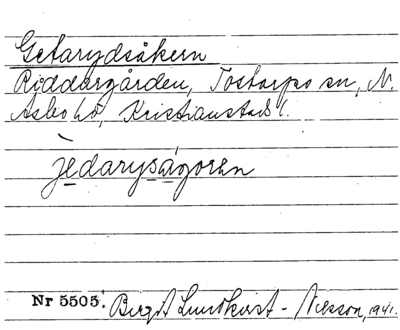 Getarydsåkern
Riddargården, Tostarps sn, N.
Åsbo hd, Kristianstads l.
jedarysågoren
Nr 5505. Birgit Lundkvist - Nilsson, 1941.